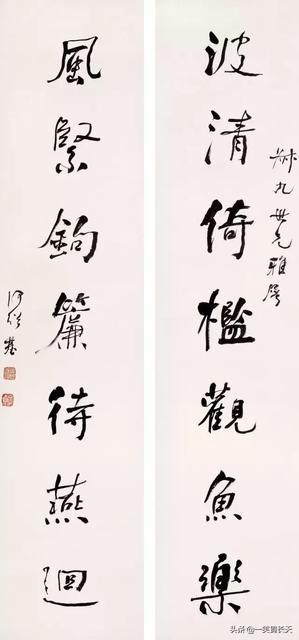 波清倚檻觀魚樂
九世兄雅屬
風緊鉤簾待燕迴
何紹基
头条 @一笑长天